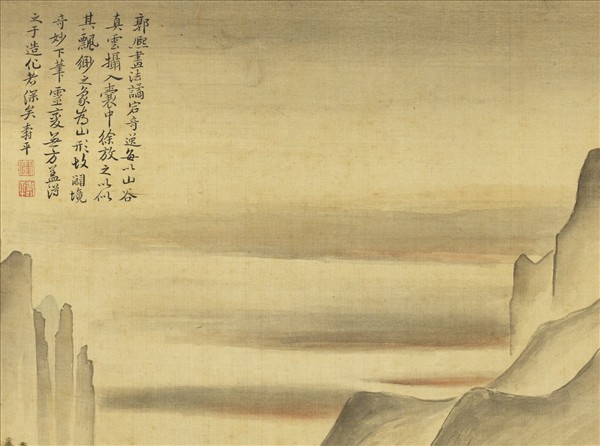 郭熙畫法譎宕奇逸每以山谷
真雲攝入囊中徐放之以似
其飄緲之象為山形故闢境
奇妙下筆靈變無方蓋得
之于造化者深矣壽平